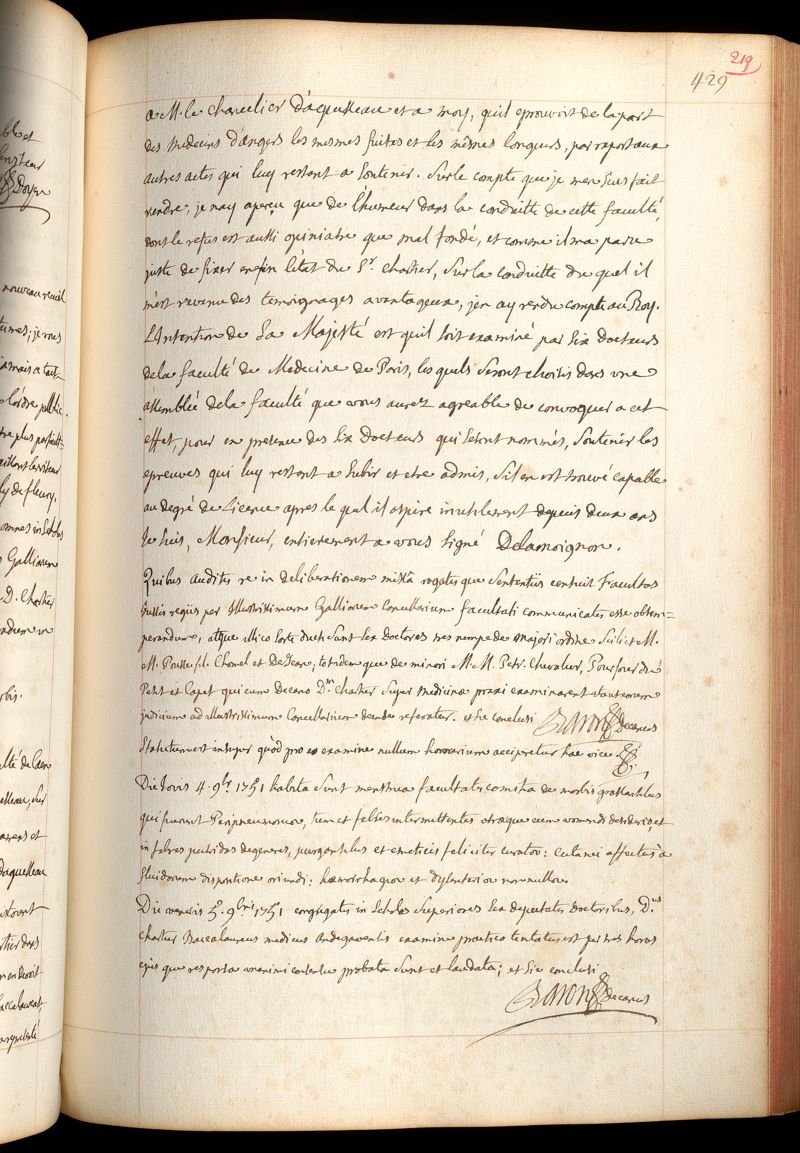 219
429
a M. le Chancelier D'aguesseau et a moy, quil eprouvoit de la part
des Medecins d'angers les mesmes fuites et les mêmes longueurs, par raport aux
autres actes qui luy restent a soutenir. Sur le compte que je men suis fait
rendre, je nay aperçu que de l'humeur dans la conduitte de cette faculté,
dont le refus est aussi opiniatre que mal fondé, et comme il ma paru
juste de fixer enfin l'état du Sr. Chartier, sur la conduitte du quel il
m'est revenu des temoignages avantageux, jen ay rendu compte au Roy.
L'Intention de Sa Majesté est quil soit examiné par six Docteurs
de la faculté de Medecine de Paris, les quels seront choisis dans une
assemblée de la faculté que vous aurez agreable de convoquer a cet
effet, pour en presence des six Docteurs qui seront nommés, soutenir les
epreuves qui luy restent a subir et etre admis, s'il en est trouvé capable
au degré de Licence apres le quel il aspire inutilement depuis deux ans
Je suis, Monsieur, entierement a vous signé Delamoignon.
Quibus auditis re in deliberationem missa rogatisque sententiis censuit Facultas
Jussis regiis per Illustrissimum Galliarum Cancellarium facultati communicatis esse obtem=
perandum, atque illico sorte ducti sunt sex doctores tres nempe de majori ordine scilicet M.
M. Pousse fil. Chomel et De Jean, totidem que de minori M. M. Petr. Chevalier, Pourfour du
Petit et Capet qui cum Decano D. Chartier super medicinæ praxi examinarent statuentur
judicium ad illustrissimum Cancellarium deinde referatur. et sic conclusi Baron decanus
Statutum est insuper quòd pro eo examine nullum honorarium accipretur hac vice.
Die Jovis 4. 9bris 1751 habita sunt menstrua facultatis comitia de morbis grassantibus
qui fuerunt Peripneumoniæ, tum et febres intermittentes utræque cum vomendi desiderio, et
in febres putridas degeneres, purgantibus et emeticis feliciter curatæ: cutanei affectus a
fluidorum dispositione oriundi: hæmorrhagiæ et dysenteriæ nonnullæ.
Die veneris 5. 9bris 1751 congregatis in Scholis Superioribus sex deputatis Doctoribus, D.us
Chartier Baccalaureus medicus Andegavensis examine practico tentatus est per tres horas
ejusque responsa unanimi consensu probata sunt et laudata; et sic conclusi
Baron decanus